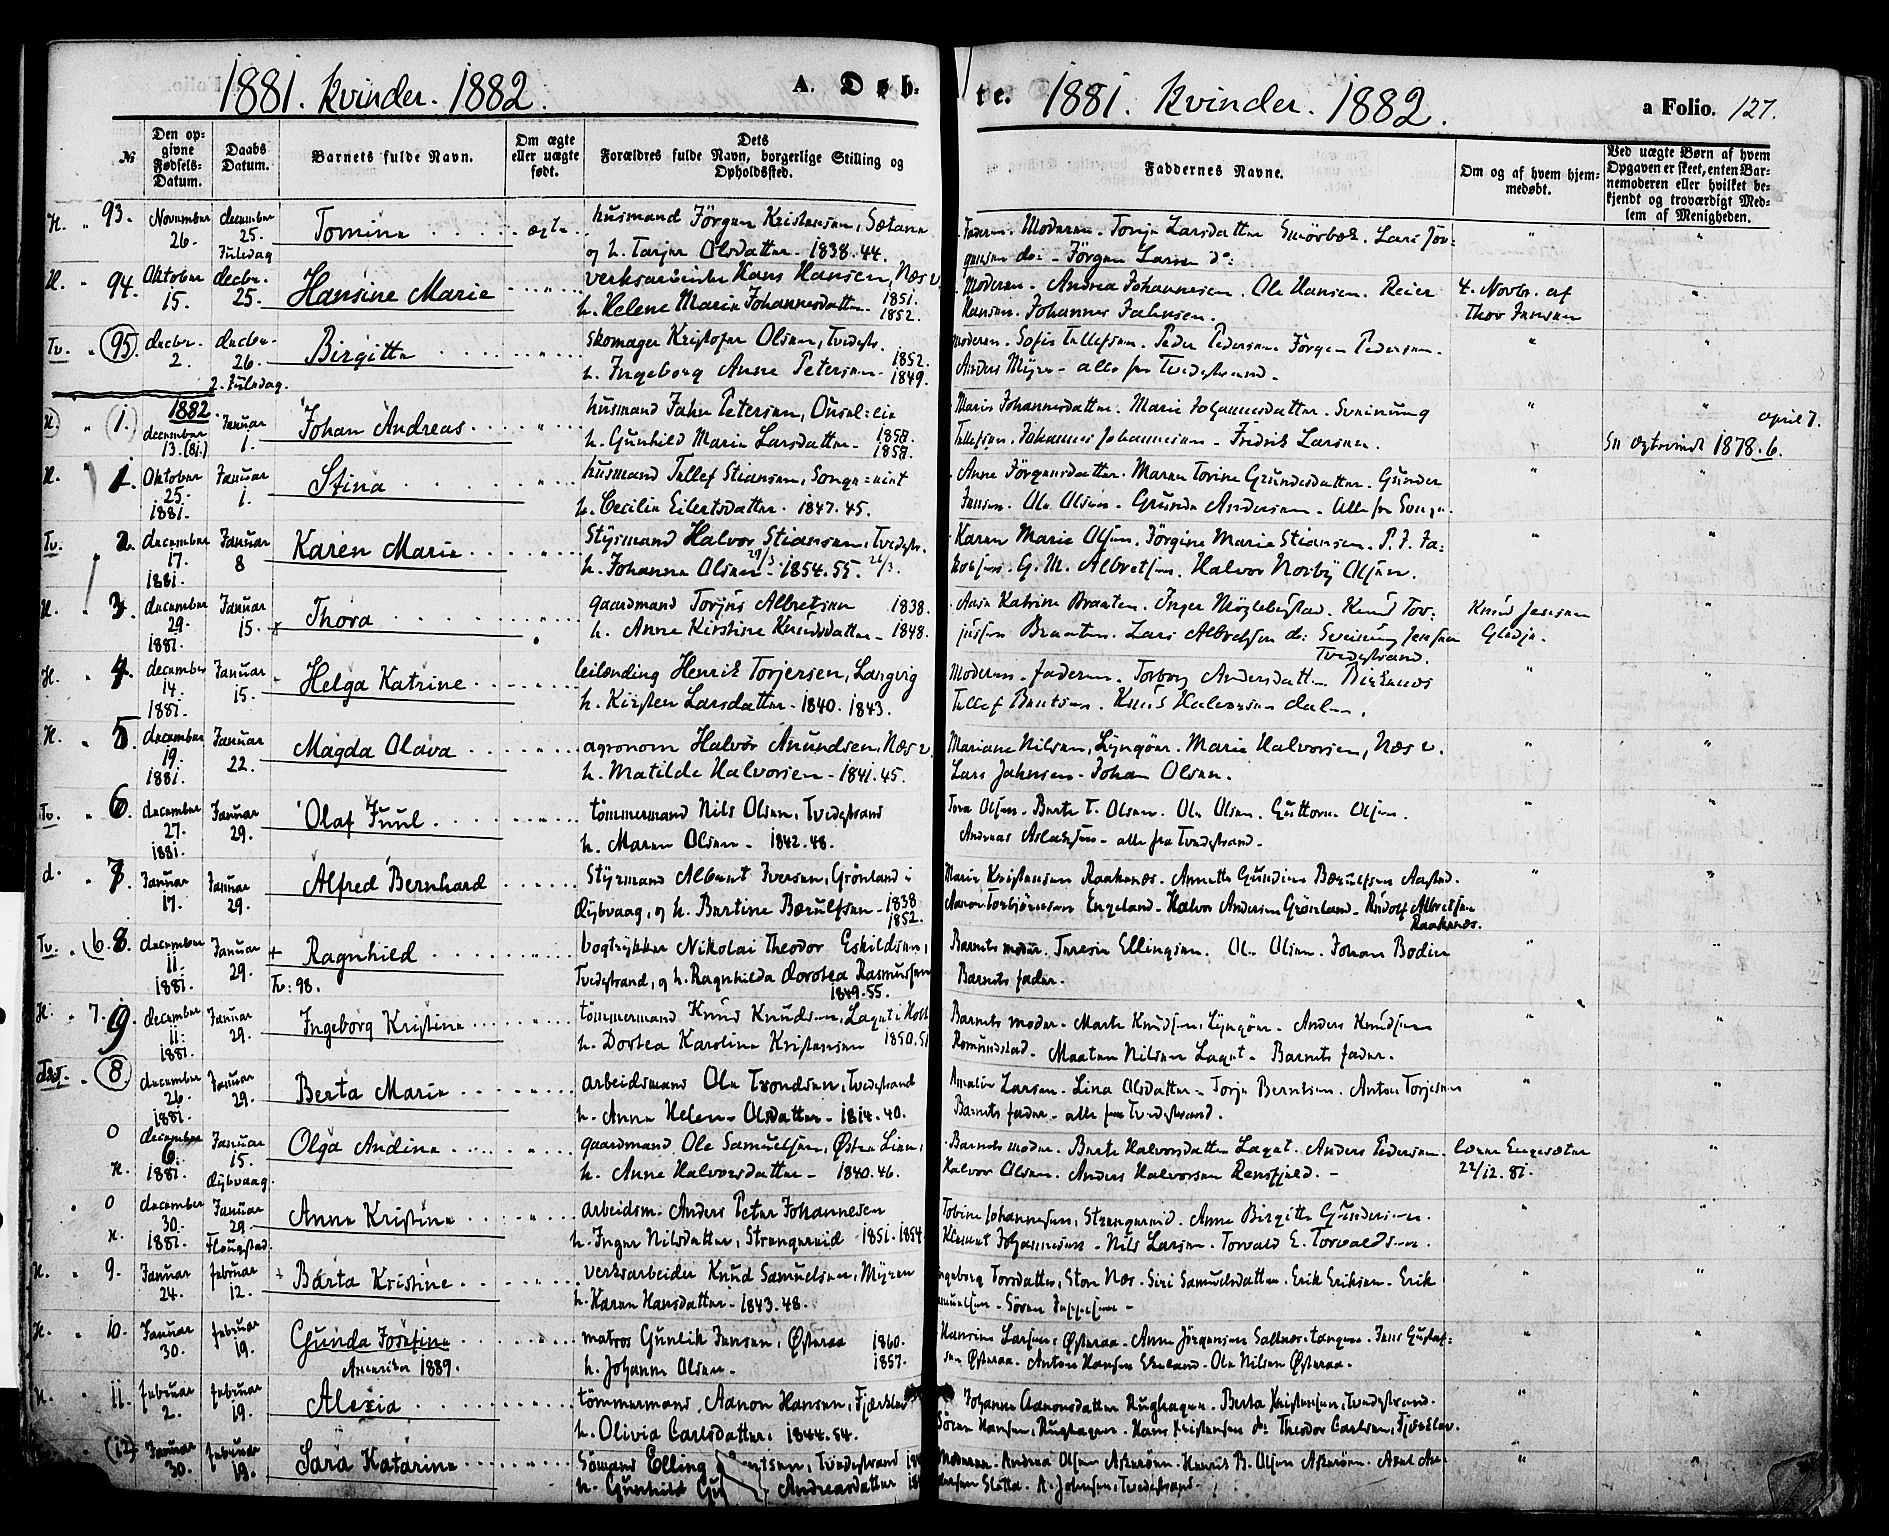 1881. Kvinder. 1882. A. Døb-
te. 1881. Kvinder. 1882. a Folio. 127.
№ Den opgivne Fødsels-Datum. Daabs Datum. Barnets fulde Navn. Om ægte eller uægte født. Dets Forældres fulde Navn, borgerlige Stilling og Opholdssted. Faddernes Navne. Om og af hvem hjemmedøbt. Ved uægte Børn af hvem Opgaven er skeet, enten Barnemoderen eller hvilket bekjendt og troværdigt Medlem af Menigheden.
H. " 93. November 26. december 25. Juledag Tomine ægte husmand Jörgen Kristensen, Sætane
og h. Tarjer Olsdatter - 1838. 44.
Faderen. Moderen. Tonje Larsdatter Smörbæk. Lars Jör-
gensen do - Jörgen Larsen do:
H. " 94. Oktober 15. decbr. 25. Hansine Marie " verksarbeider Hans Hansen, Næs v.
h. Helene Marie Johannesdatter 1851. 1852.
Moderen - Andrea Johannesen. Ole Hansen. Reier
Hansen. Johannes Jahnsen.
4. Novbr. af
Thor Jensen
Tv. " 95. decbr. 2. decbr. 26. 2. Juledag. Birgitte " Skomager Kristofer Olsen, Tvedestr.
h. Ingeborg Anne Petersen - 1852. 1849.
moderen - Sofie Tellefsen. Peder Pedersen Jörgen Pedersen.
Anders Myre - alle fra Tvedestrand.
H. " 1. 1882. december 13. (81.) Januar 1. Johan Andreas " husmand Jahn Petersen,
h. Gunhild Marie Larsdatter - 1858. 1858.
Maren Johannesdatter. Marie Johannesdatter. Sveinung
Tellefsen. Johannes Johannesen - Fredrik Larsen.
april 7.
1878. 6.
H. " 1. Oktober 25. 1881. Januar 1. Stina " husmand Tellef Stiansen, Songe =
h. Cecilie Eilertsdatter - 1847. 45.
Anne Jörgensdatter. Maren Torine Gundersdatter. Gunder
Jensen. Ole Olsen. Gunder Andersen. Alle fra Songe.
Tv. " 2. december 17. 1881. Januar 8 Karen Marie " Styrmand Halvor Stiansen, Tvedestr.
h. Johanne Olsen 29/3 - 1854. 55. 26/3.
Karen Marie Olsen. Jörgine Marie Stiansen. P. J. Ja-
kobsen. G. M. Albretsen. Halvor Norby Olsen.
H. " 3. december 29. 1881. Januar 15. Thora " gaardmand Torjus Albretsen 1838.
h. Anne Kirstine Knudsdatter - 1848.
Anne Katrine Braaten. Inger Möglebustad. Knud Tor-
jussen Braaten. Lars Albretsen do: Sveinung Jensen
Tvedestrand.
Knud Jensen
Gledje.
H. " 4. december 14. 1881. Januar 15. Helga Katrine " leilending Henrik Torjersen, Langvig
h. Kirsten Larsdatter - 1840. 1843.
Moderen. faderen. Torborg Andersdatt.
Tellef Bentsen. Knud Halvorsen dalen.
H. " 5. december 19. 1881. Januar 22. Magda Olava " agronom Halvor Anundsen, Næs v.
h. Matilde Halvorsen - 1841. 45.
Mariane Nilsen, Lyngöer. Marie Halvorsen, Næs v.
Lars Jahnsen - Johan Olsen.
Tv. 6. december 27. 1881. Januar 29. Olaf Juul " tömmermand Nils Olsen, Tvedestrand
h. Maren Olsen - 1842. 48.
Tora Olsen. Berte T. Olsen. Ole Olsen. Guttorm Olsen.
Andreas Aslaksen - alle fra Tvedestrand.
d. " 7. Januar 17. Januar 29. Alfred Bernhard " Styrmand Albert Iversen, Grönland i
dybvaag, og h. Bertine Bærulfsen - 1838 1852.
Marie Kristensen Raaknes. Annette Gundine Bærulfsen Aastad.
Aanon Torbjörnsen Engeland - Halvor Andersen Grönland - Rudolf Albretsen
Raaknes.
Tv. " (6. 8. december 11. 1881. Januar 29. Ragnhild Tv: 98. " bogtrykker Nikolai Theodor Eskildsen,
Tvedestrand, og h. Ragnhilda Dorotea Rasmussen
1849. 55.
Barnets moder. Teresie Ellingsen. Ole Olsen. Johan Bodin
Barnets fader.
H. " 7. 9. december 11. 1881. Januar 29. Ingeborg Kristine " tömmermand Knud Knudsen, Laget i Holt
h. Dortea Karoline Kristensen 1850. 51
Barnets moder - Marte Knudsen, Lyngöer - Anders Knudsen
Romundstad. Maaten Nilsen Laget - Barnets fader.
" 8. december 26. 1881. Januar 29. Berta Marie " arbeidsmand Ole Trondsen, Tvedestrand
h. Anne Helene Olsdatter - 1814. 40.
Amalie Larsen - Lina Olsdatter - Torje Berntsen. Anton Torjesen
Barnets fader - alle fra Tvedestrand.
0 H. december 6. 1881. Januar 15. dybvaag. Olga Andine " gaardmand Ole Samuelsen, Østre Lien,
h. Anne Halvorsdatter - 1840. 46.
Barnets moder. Berte Halvorsdatter Laget. Anders Pedersen.
Halvor Olsen. Anders Halvorsen Rensfjeld. -
Lærer Engesæter
22/12. 81.
0 H. december 30. 1881. Januar 29. Flougstad. Anne Kristine " arbeidsm. Anders Peter Johannesen
h. Inger Nilsdatter, Strengereid 1851 - 1854
Tobine Johannesen, Strengereid. Anne Birgitte Gundersen.
Klement Johannesen - Nils Larsen. Torvald E. Torvaldsen
H. " 9. Januar 24. februar 12. Berta Kristine " verksarbeider Knud Samuelsen, Myren
h. Karen Hansdatter - 1843. 48.
Ingeborg Torsdatter, Store Næs. Siri Samuelsdatter. Erik Eriksen. Erik
Samuelsen - Sören Jeppesen -
H. " 10. Januar 30. februar 19. Gunda Josefine Amerika 1889. " matros Gunlik Jensen, Østeraa 1860.
h. Johanne Olsen - 1857.
Hansine Larsen, Østeraa. Anne Jörgensen Saltnestangen. Jens Gustaf-
sen Østeraa. Anton Hansen Ekeland. Ole Nilsen Østeraa.
H. " 11. februar 2. februar 19. Alexia " tömmermand, Aanon Hansen, Fjærkleiv
h. Olivia Carlsdatter, 1844. 54.
Johanne Aanonsdatter Rughagen. Berta Kristensen, Tvedestrand.
Sören Hansen, Rughagen. Hans Kristensen do: Theodor Carlsen, Fjærkleiv.
(12) Januar 30. februar 19. Sara Katarine " Sömand Elling Tvedestrand
h. Gunhild Andreasdatter
Moderen. Andrea Olsen Askerøen. Henrik B. Olsen Askerøen. Axel An-
dersen Sletta. A. Johnsen, Tvedestrand.